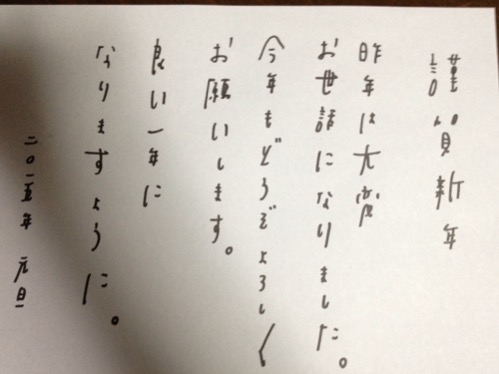 謹賀新年
昨年は大変
お世話になりました。
今年もどうぞよろしく
お願いします。
良い一年に
なりますように。
二〇一五年 元旦